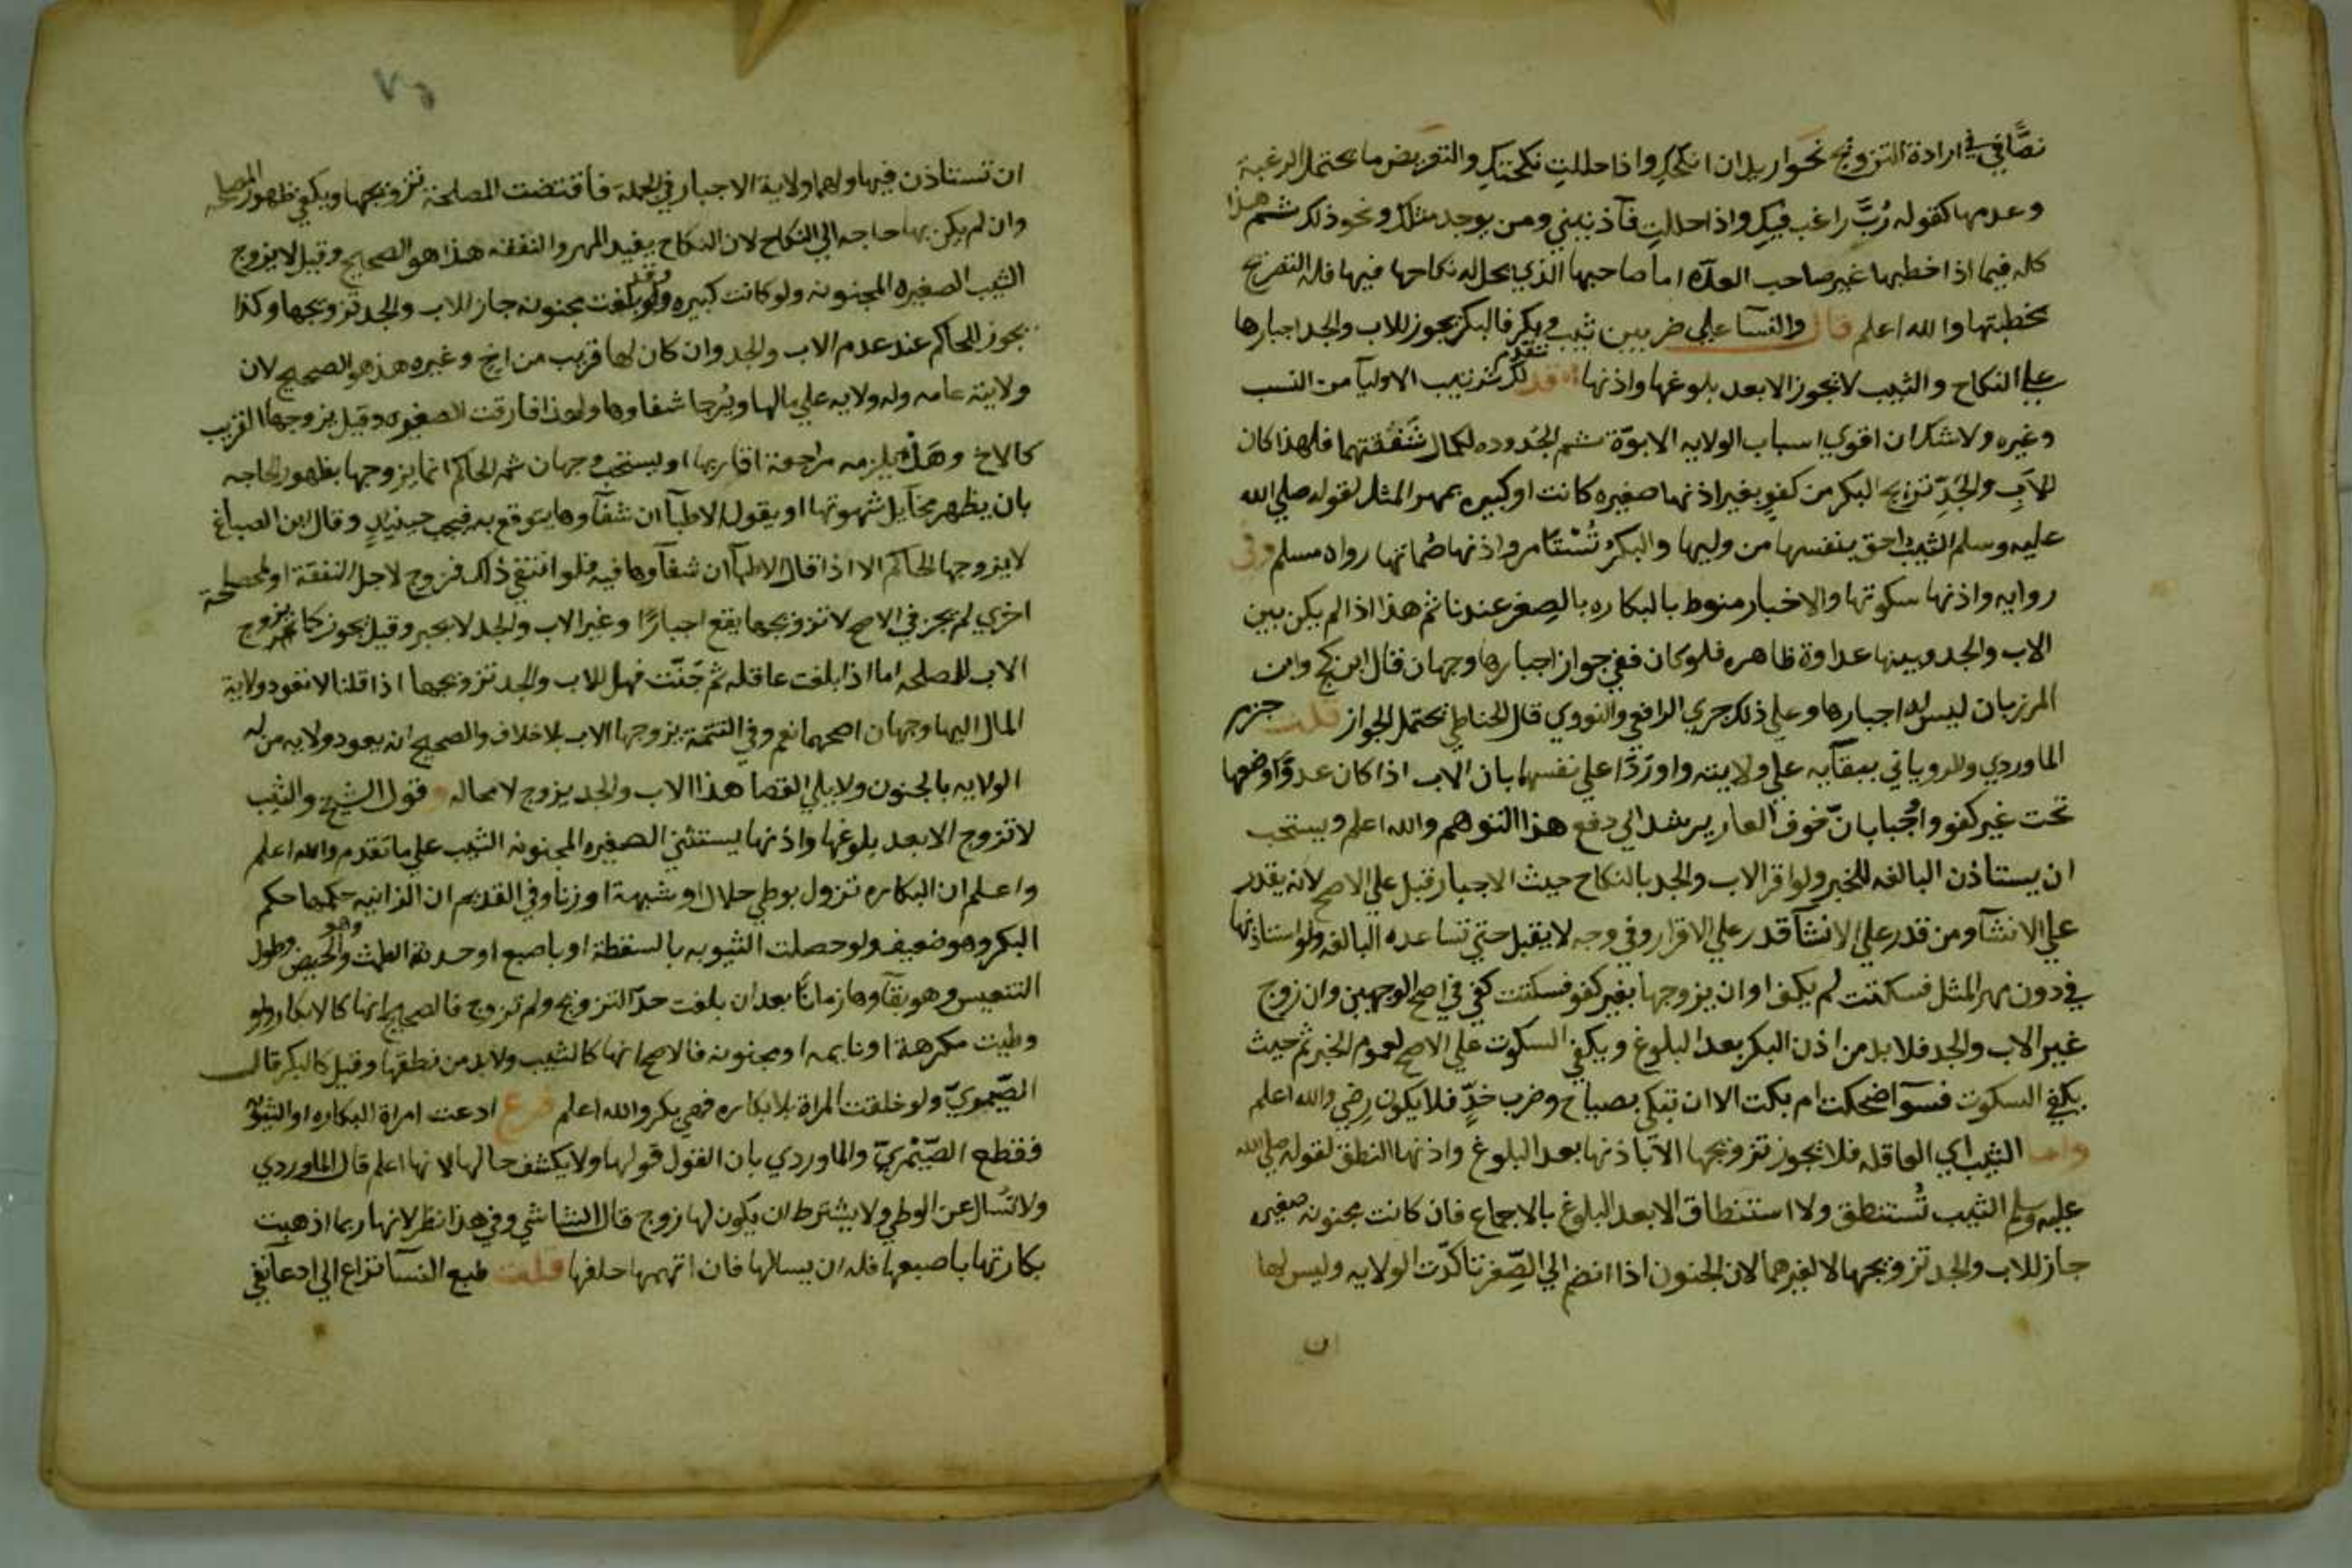 نصًّا في ارادة التزويج نحو اريد ان انكحك واذا حللتِ نكحتكِ والتعريض ما يحتمل الرغبة
وعدمها كقوله رُبَّ راغب فيكِ واذا حللتِ فآذنيني ومن يجد مثلك ونحو ذلك ثم هذا
كله فيما اذا خطبها غير صاحب العدّه اما صاحبها الذي يحل له نكاحها فيها فله التصريح
بخطبتها والله اعلم قال والنسآ على ضربين ثيب وبكر فالبكر يجوز للاب والجد اجبارها
على النكاح والثيب لا تجوز الا بعد بلوغها واذنها قد تقدم ذكر ترتيب الاوليآ من النسب
وغيره ولا شك ان اقوي اسباب الولايه الابوّة ثم الجدوده لكمال شَفَقتهما فلهذا كان
للابِ والجَدِّ تزويج البكر من كفوٍ بغير اذنها صغيره كانت او كبيره بمهر المثل لقوله صلي الله
عليه وسلم الثيبُ احق بنفسها من وليها والبكرُ تُسْتَامر واذنها صُماتها رواه مسلم وفي
روايه واذنها سكوتها والاخبار منوط بالبكاره بالصِغر عندنا ثم هذا اذا لم يكن بين
الاب والجد وبينها عداوة ظاهره فلو كان ففي جواز اجبارها وجهان قال ابن كج وابن
المرزبان ليس له اجبارها وعلي ذلك جري الرافعي والنووي قال الحناطي يحتمل الجواز قلت جزم
الماوردي والروياني ببقآيه علي ولايته واورَدَا علي نفسهما بان الاب اذا كان عدوًّا وضعها
تحت غير كفو واُجُبا بانّ خوف العار يرشد الي دفع هذا التوهم والله اعلم ويستحب
ان يستاذن البالغه للخبر ولو اقر الاب والجد بالنكاح حيث الاجبار قبل علي الاصح لانه يقدر
علي الانشآ ومن قدر علي الانشآ قدر علي الاقرار وفي وجه لا يقبل حتي تساعده البالغه ولو استاذنها
في دون مهر المثل فسكتت لم يكف او ان يزوجها بغير كفو فسكتت كفي في اصح الوجهين وان زوج
غير الاب والجد فلا بد من اذن البكر بعد البلوغ ويكفي السكوت علي الاصح لعموم الخبر ثم حيث
يكفي السكوت فسوآ ضحكت ام بكت الا ان تبكي بصياح وضرب خدٍّ فلا يكون رضي والله اعلم
واما الثيب اي العاقله فلا يجوز تزويجها الا باذنها بعد البلوغ واذنها النطق لقوله صلي الله
عليه وسلم الثيب تُستنطق ولا استنطاق الا بعد البلوغ بالاجماع فان كانت مجنونه صغيره
جاز للاب والجد تزويجها لا لغيرهما لان الجنون اذا انضم الي الصِّغر تاكدّت الولايه وليس لها
ان
٧٥
ان تستاذن فيها ولهما ولاية الاجبار في الجملة فاقتضت المصلحة تزويجها ويكفي ظهور المصلحه
وان لم يكن بها حاجه الي النكاح لان النكاح يفيد المهر والنفقه هذا هو الصحيح وقيل لا يزوج
الثيب الصغيره المجنونه ولو كانت كبيره وقد بلغت مجنونه جاز للاب والجد تزويجها وكذا
يجوز للحاكم عند عدم الاب والجد وان كان لها قريب من اخ وغيره هذ هو الصحيح لان
ولايته عامه وله ولايه علي مالها ويُرجا شفاوها ولهذا فارقت الصغيره وقيل يزوجها القريب
كالاخ وهَلْ يلزمه مراجعة اقاربها او يستحب وجهان ثم الحاكم انما يزوجها بظهور الحاجه
بان يظهر مخآيل شهوتها او يقول الاطبآ ان شفآوها يتوقع به فيجب حينيذٍ وقال ابن الصباغ
لا يزوجها الحاكم الا اذا قال الاطبآ ان شفآوها فيه فلو انتفي ذلك فزوج لاجل النفقة او لمصلحة
اخري لم يجز في الاصح لا تزويجها يقع اجبارًا وغير الاب والجد لا يجبر وقيل يجوز كما يزوج
الاب للمصلحه اما اذا بلغت عاقله ثم جَنّت فهل للاب والجد تزويجها اذا قلنا لا تعود ولاية
المال اليهما وجهان اصحهما نعم وفي التتمة يزوجها الاب بلا خلاف والصحيح انه يعود ولايه من له
الولايه بالجنون ولا يلي القضا هذا الاب والجد يزوج لا محاله وقول الشيخ والثيب
لا تزوج الا بعد بلوغها واذنها يستثني الصغيره المجنونه الثيب علي ما تقدم والله اعلم
واعلم ان البكاره تزول بوطي حلال او شبهة او زنا وفي القديم ان الزانيه حكمها حكم
البكر وهو ضعيف ولو حصلت الثيوبه بالسقطة او باصبع او حدة الطمث وهو الحيض وطول
التنعيس وهو بقآوها زمانًا بعد ان بلغت حدّ التزويج ولم تزوج فالصحيح انها كالابكار ولو
وطيت مكرهة او نايمه او مجنونه فالاصح انها كالثيب ولابد من نطقها وقيل كالبكر قال
الصّيمويّ ولو خلقت المراة بلا بكاره فهي بكر والله اعلم فرع ادعت امراة البكاره او الثيوبه
فقطع الصَّيْمَرِيّ والماوردي بان القول قولها ولا يكشف حالها لانها اعلم قال الماوردي
ولا تُسال عن الوطي ولا يشترط ان يكون لها زوج قال الشاشي وفي هذا نظر لانها ربما اذهبت
بكارتها باصبعها فله ان يسالها فان اتهمها حلفها قلت طبع النسآ نزاع الي ادعآ نفي